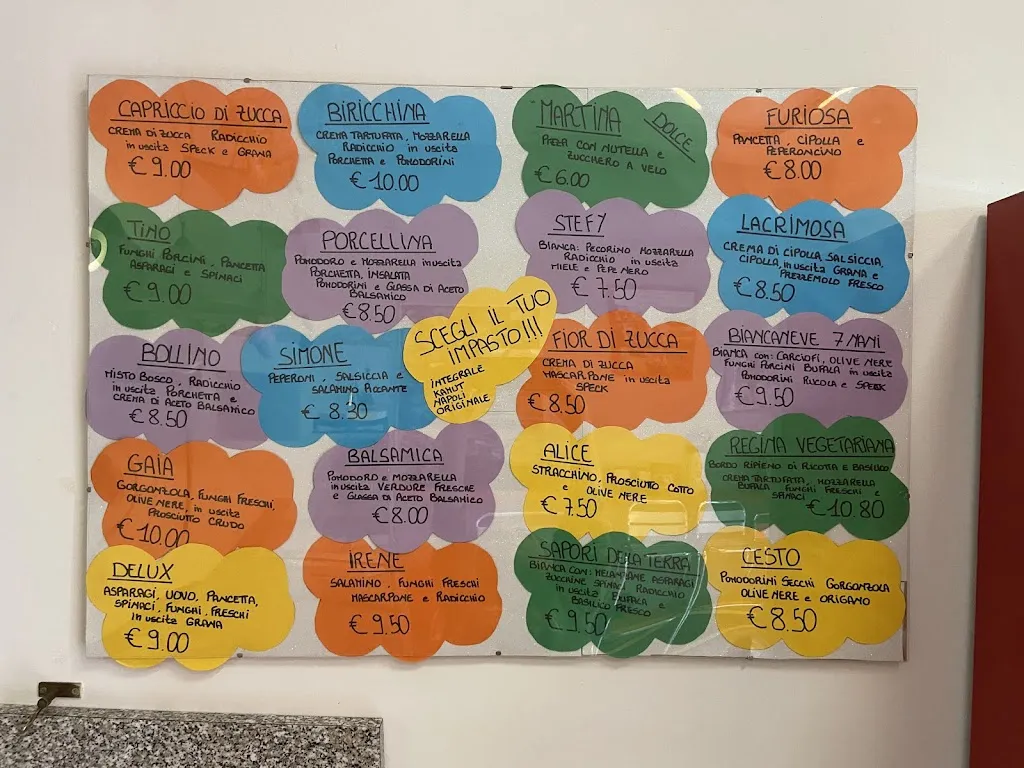 CAPRICCIO DI ZUCCA
CREMA DI ZUCCA RADICCHIO
in uscita SPECK e GRANA
€ 9.00
BIRICCHINA
CREMA TARTUFATA, MOZZARELLA
RADICCHIO in uscita
PORCHETTA e POMODORINI
€ 10.00
MARTINA
DOLCE
PIZZA CON NUTELLA e
ZUCCHERO A VELO
€ 6.00
FURIOSA
PANCETTA, CIPOLLA e
PEPERONCINO
€ 8.00
TINO
FUNGHI PORCINI, PANCETTA
ASPARAGI e SPINACI
€ 9.00
PORCELLINA
POMODORO e MOZZARELLA in uscita
PORCHETTA, INSALATA
POMODORINI e GLASSA DI ACETO
BALSAMICO
€ 8.50
STEFY
BIANCA: PECORINO MOZZARELLA
RADICCHIO in uscita
MIELE e PEPE NERO
€ 7.50
LACRIMOSA
CREMA DI CIPOLLA, SALSICCIA,
CIPOLLA, in uscita GRANA e
PREZZEMOLO FRESCO
€ 8.50
SCEGLI IL TUO
IMPASTO!!!
INTEGRALE
KAMUT
NAPOLI
ORIGINALE
BOLLINO
MISTO BOSCO, RADICCHIO
in uscita PORCHETTA e
CREMA DI ACETO BALSAMICO
€ 8.50
SIMONE
PEPERONI, SALSICCIA e
SALAMINO PICCANTE
€ 8.30
FIOR DI ZUCCA
CREMA DI ZUCCA
MASCARPONE in uscita
SPECK
€ 8.50
BIANCANEVE 7 NANI
BIANCA con: CARCIOFI, OLIVE NERE
FUNGHI PORCINI BUFALA in uscita
POMODORINI RUCOLA e SPECK
€ 9.50
GAIA
GORGONZOLA, FUNGHI FRESCHI,
OLIVE NERE, in uscita
PROSCIUTTO CRUDO
€ 10.00
BALSAMICA
POMODORO e MOZZARELLA
in uscita VERDURE FRESCHE
e GLASSA DI ACETO BALSAMICO
€ 8.00
ALICE
STRACCHINO, PROSCIUTTO COTTO
e OLIVE NERE
€ 7.50
REGINA VEGETARIANA
BORDO RIPIENO DI RICOTTA E BASILICO
CREMA TARTUFATA, MOZZARELLA
BUFALA FUNGHI FRESCHI e
SPINACI
€ 10.80
DELUX
ASPARAGI, UOVO, PANCETTA,
SPINACI, FUNGHI, FRESCHI
in uscita GRANA
€ 9.00
IRENE
SALAMINO, FUNGHI FRESCHI
MASCARPONE e RADICCHIO
€ 9.50
SAPORI DELLA TERRA
BIANCA CON: MELANZANE ASPARAGI
ZUCCHINE SPINACI RADICCHIO
in uscita BUFALA e
BASILICO FRESCO
€ 9.50
CESTO
POMODORINI SECCHI GORGONZOLA
OLIVE NERE e ORIGANO
€ 8.50